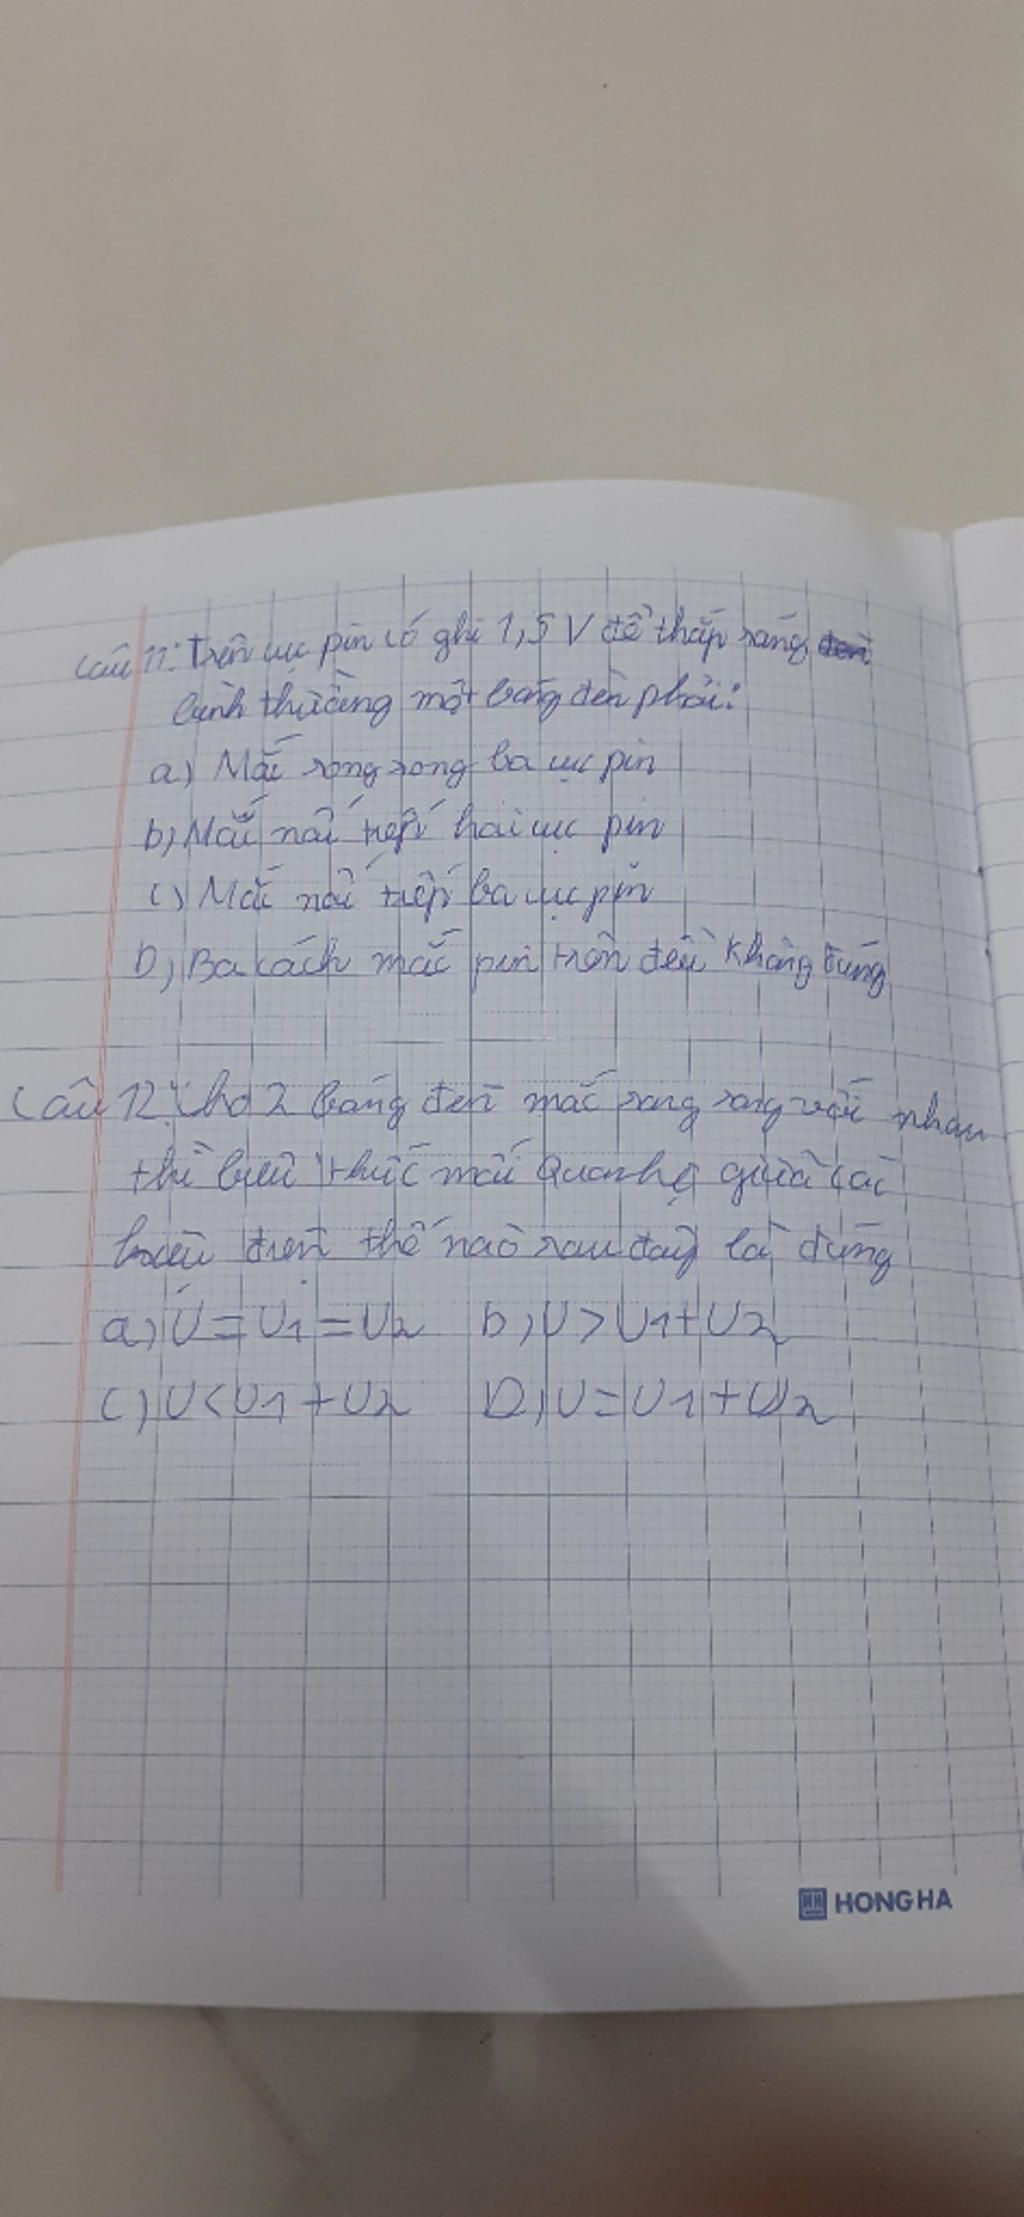 Câu 11: Trên cục pin có ghi 1,5 V để thắp sáng
bình thường một bóng đèn phải:
a) Mắc song song ba cục pin
b) Mắc nối tiếp hai cục pin
c) Mắc nối tiếp ba cục pin
D) Ba cách mắc pin trên đều không đúng
Câu 12: Cho 2 bóng đèn mắc song song với nhau
thì biểu thức mối quan hệ giữa các
hiệu điện thế nào sau đây là đúng
a) U = U1 = U2 b) U > U1 + U2
c) U < U1 + U2 D) U = U1 + U2
HH HONG HA